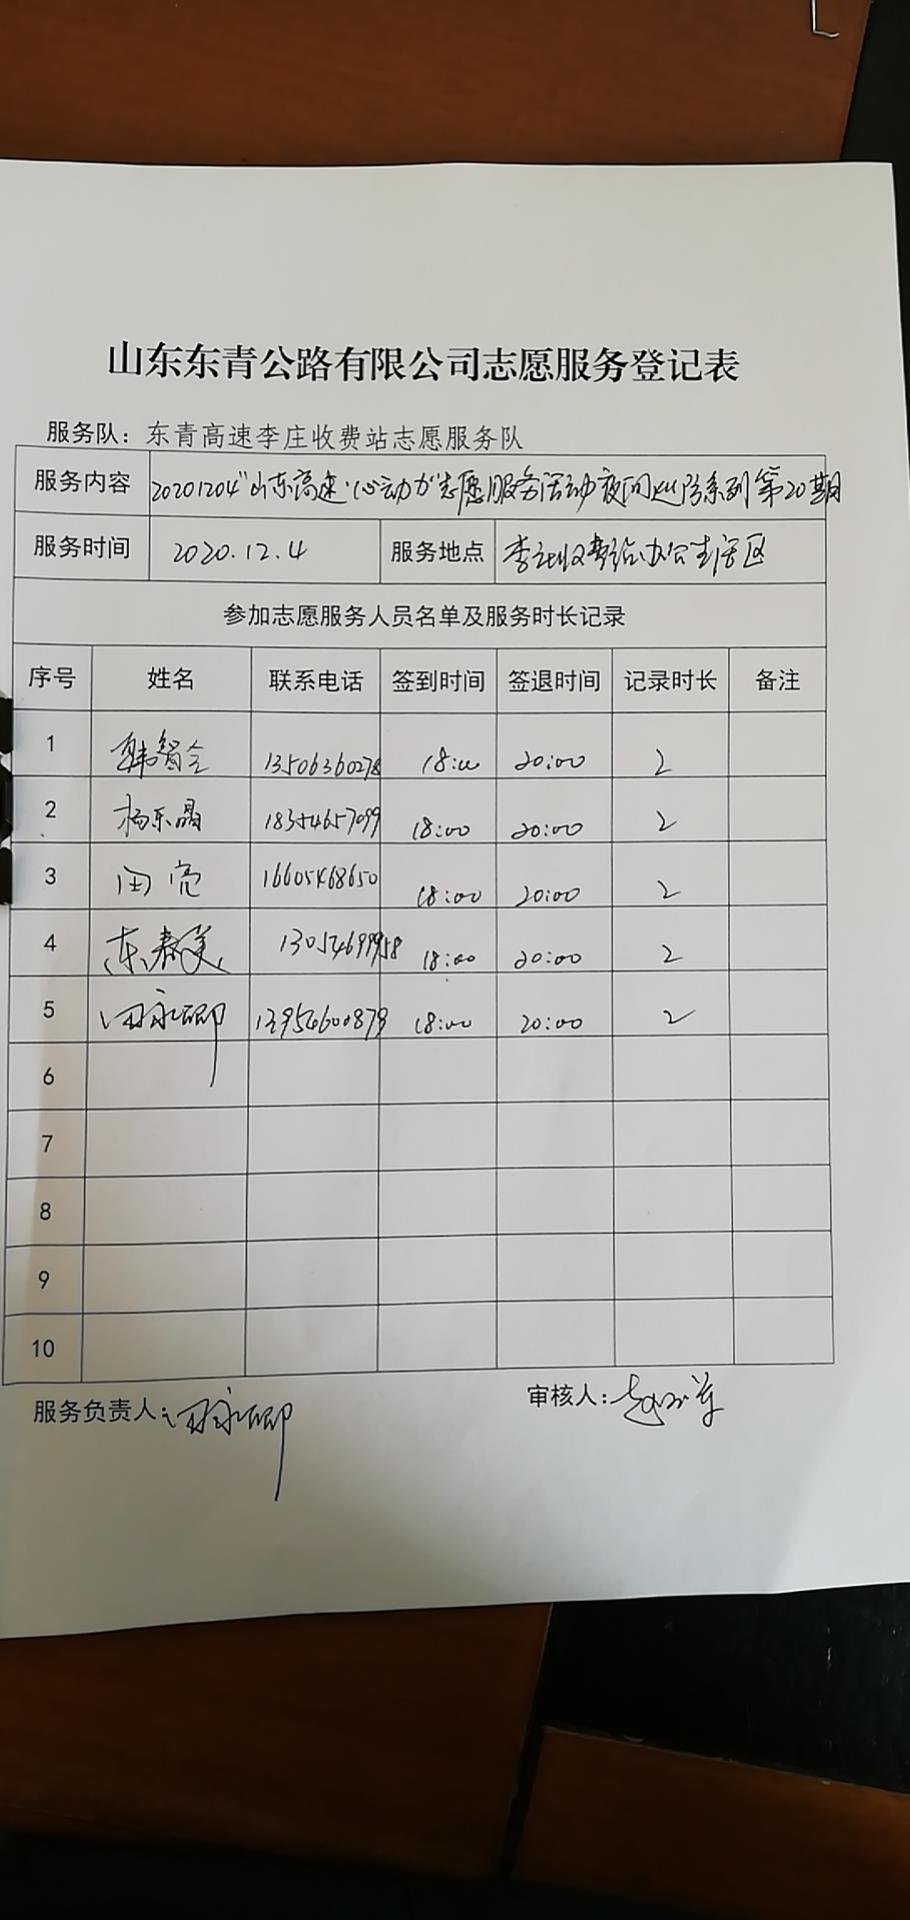 山东东青公路有限公司志愿服务登记表
服务队：东青高速李庄收费站志愿服务队
服务内容 20201204"山东高速·心动力"志愿服务活动夜间巡防系列第20期
服务时间 2020.12.4 服务地点 李庄收费站办公生活区
参加志愿服务人员名单及服务时长记录
序号 姓名 联系电话 签到时间 签退时间 记录时长 备注
1 韩智全 13506360278 18:00 20:00 2
2 杨乐晶 18354657099 18:00 20:00 2
3 田亮 16605468650 18:00 20:00 2
4 春美 13054699958 18:00 20:00 2
5 田永卿 13954600879 18:00 20:00 2
6
7
8
9
10
服务负责人：田永卿 审核人：赵